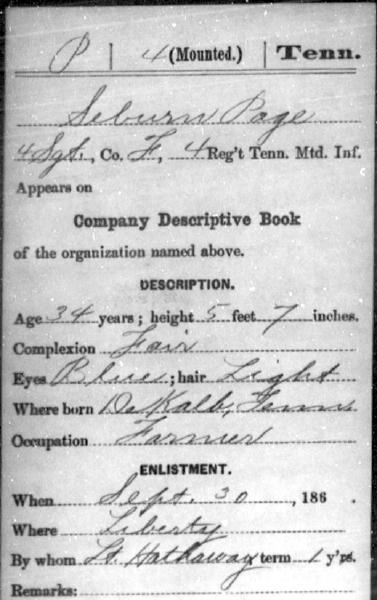 P | 4 (Mounted.) | Tenn.
Seburn Page
4 Sgt., Co. F, 4 Reg't Tenn. Mtd. Inf.
Appears on
Company Descriptive Book
of the organization named above.
DESCRIPTION.
Age 34 years; height 5 feet 7 inches.
Complexion Fair
Eyes Blue; hair Light
Where born DeKalb, Tenn
Occupation Farmer
ENLISTMENT.
When Sept. 30, 186 .
Where Liberty
By whom Lt. Hathaway term 1 y'rs.
Remarks: